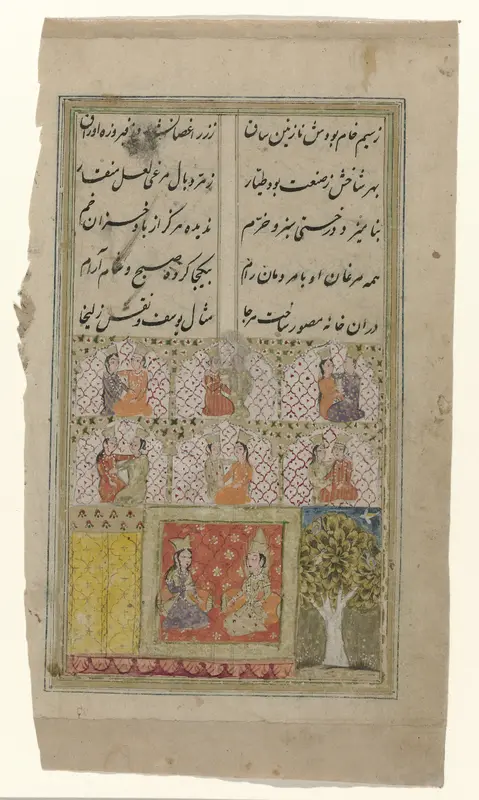 زسیم خام بودش نازنین ساق ززر اغصانش و ز فیروزه اوراق
بهر شاخش زصنعت بود طیّار زمرد بال مرغی لعل منقار
بنامیزد درختی سبز و خرّم ندیده هرگز از باد خزان خم
همه مرغان او با مردمان رام بیکجا کرده صبح و شام آرام
دران خانه مصور ساخت هرجا مثال یوسف و نقش زلیخا